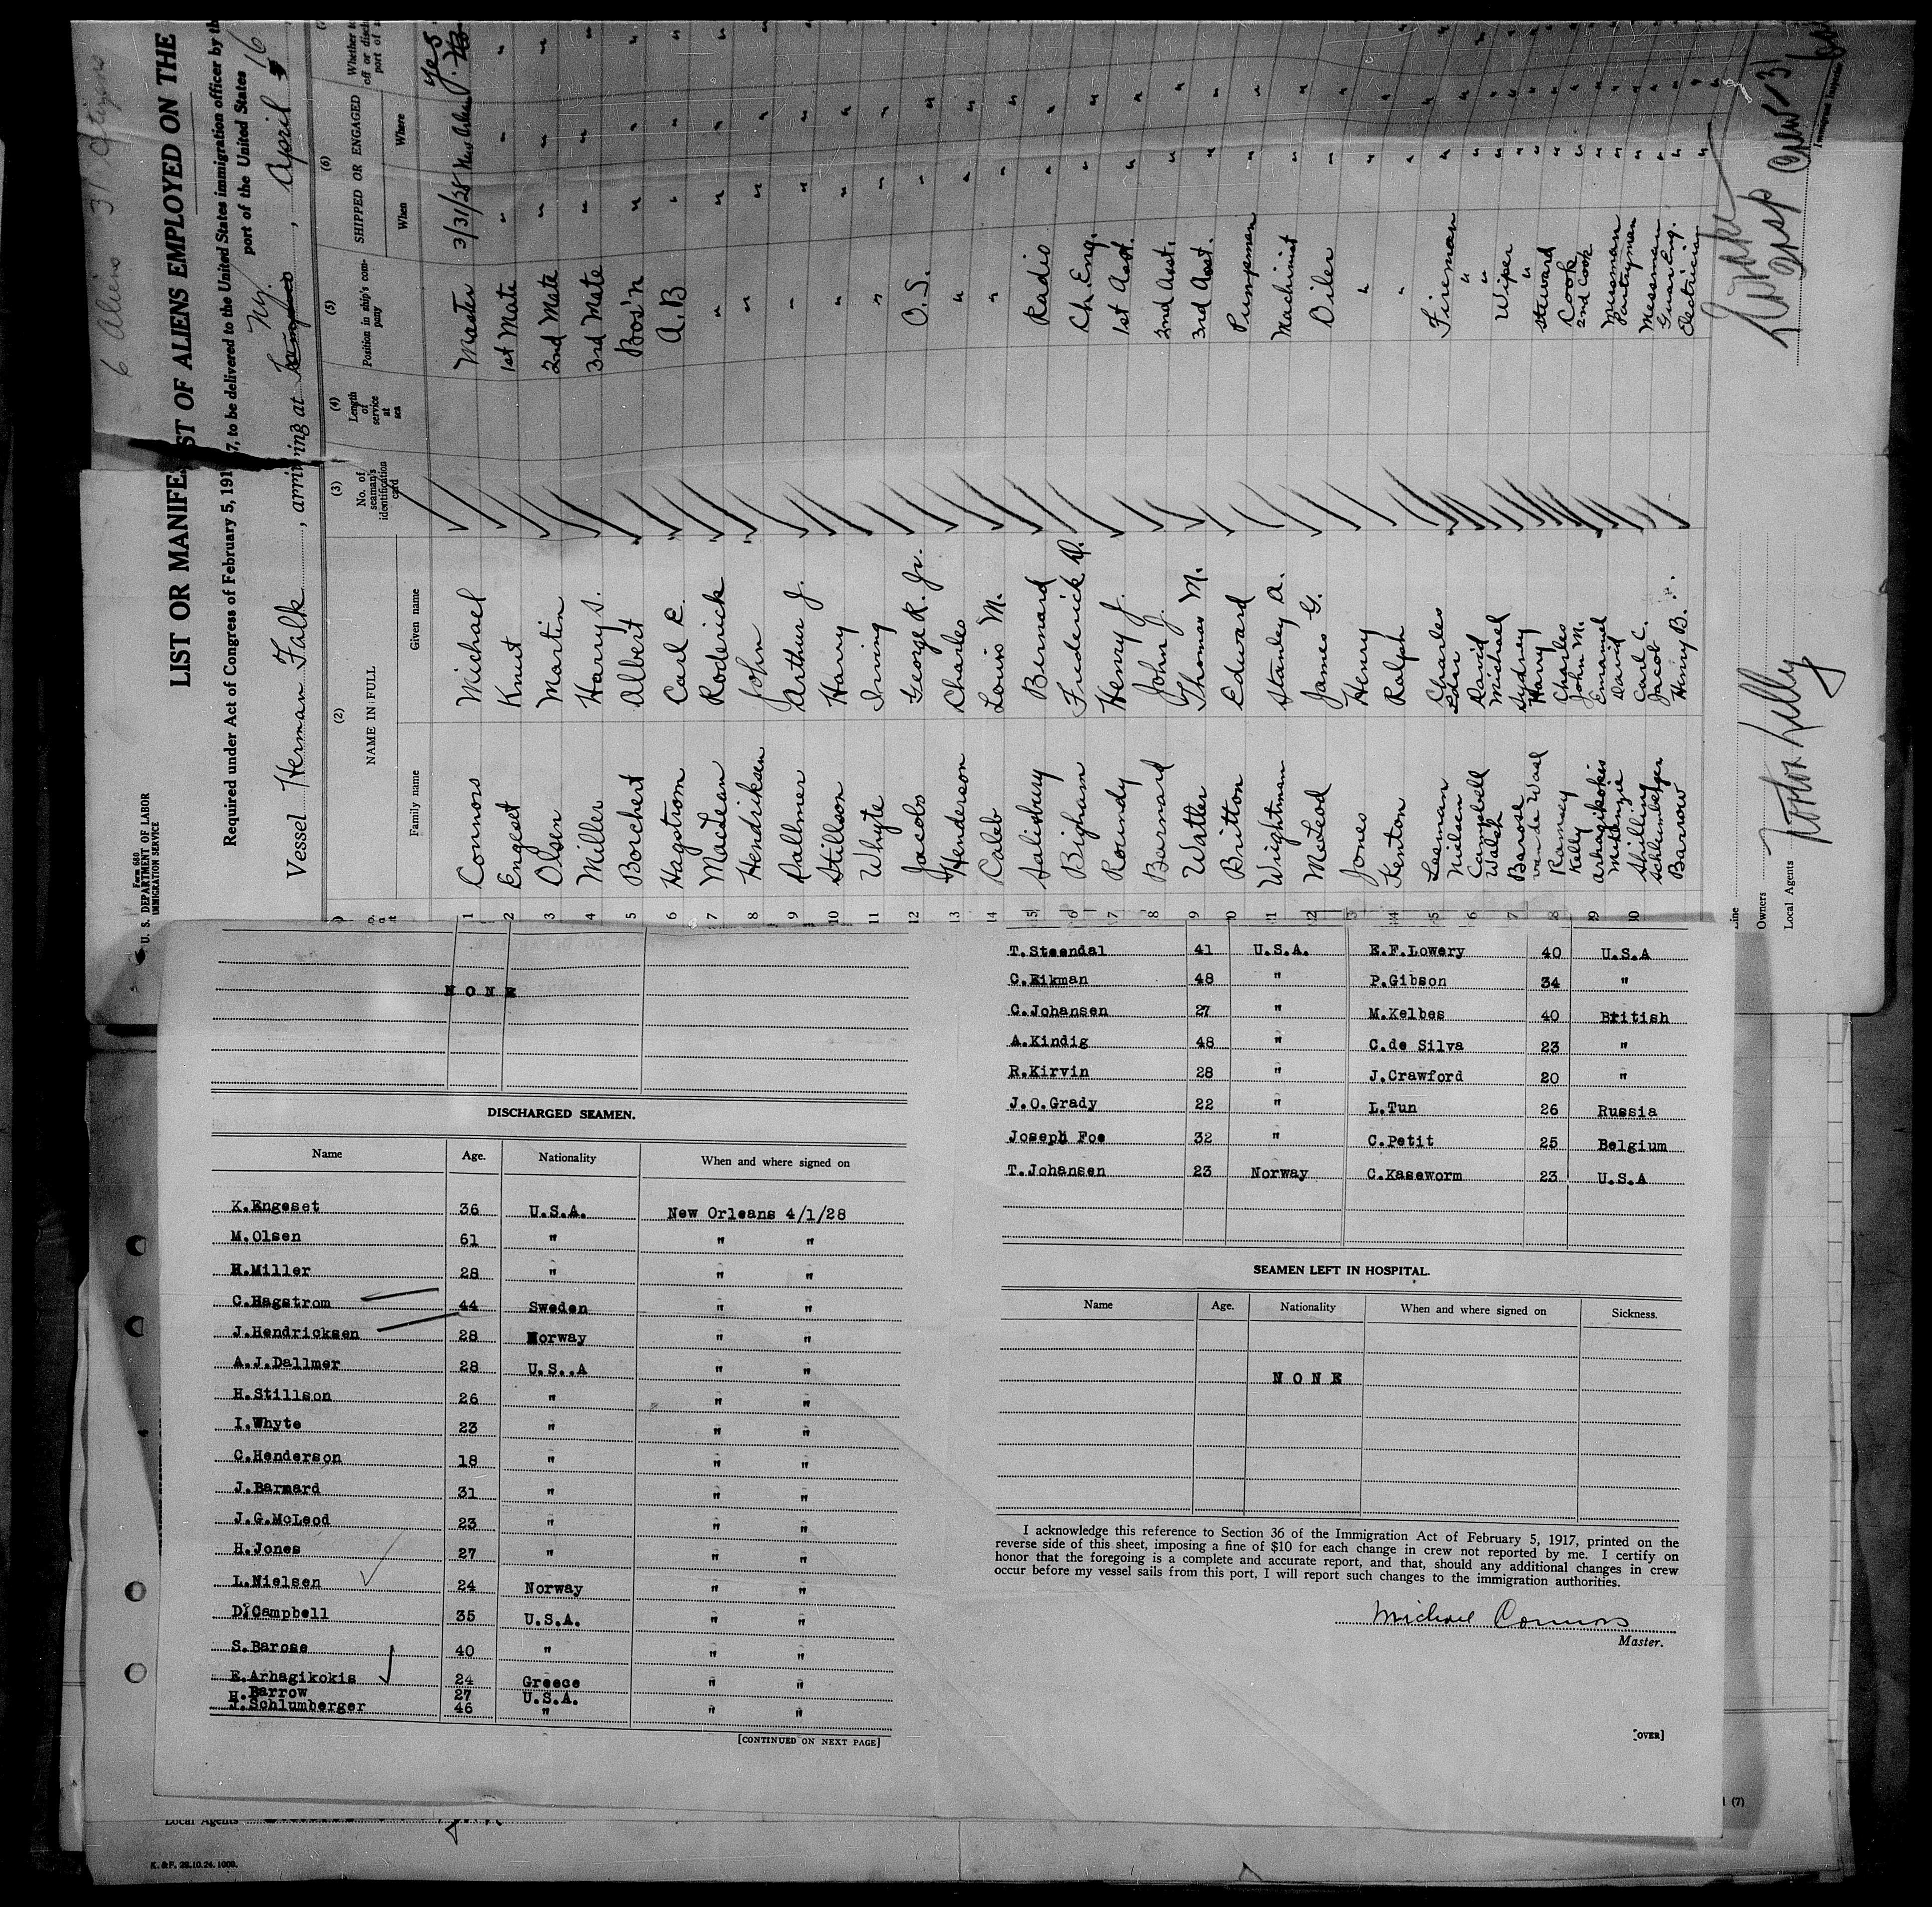 6 Aliens 31 Citizens
Form 680
U. S. DEPARTMENT OF LABOR
IMMIGRATION SERVICE
LIST OR MANIFEST OF ALIENS EMPLOYED ON THE
Required under Act of Congress of February 5, 1917, to be delivered to the United States immigration officer by th
port of the United States
Vessel Herman Falk, arriving at N.Y., April 16
(2) (3) (4) (5) (6)
NAME IN FULL No. of seaman's identification card Length of service at sea Position in ship's company SHIPPED OR ENGAGED Whether
Family name Given name When Where
1 Connors Michael Master 3/31/28 New Orleans Yes
2 Engeset Knut 1st Mate " " "
3 Olsen Martin 2nd Mate " " "
4 Miller Harry S. 3rd Mate " " "
5 Borchert Albert Bos'n " " "
6 Hagstrom Carl E. A.B " " "
7 MacLean Roderick " " " "
8 Hendriksen John " " " "
9 Dallmer Arthur J. " " " "
10 Stillson Harry " " " "
11 Whyte Irving " " " "
12 Jacobs George R. Jr. O.S. " " "
13 Henderson Charles " " " "
14 Caleb Louis M. " " " "
15 Salisbury Bernard Radio " " "
16 Bigham Frederick D. Ch. Eng. " " "
17 Roundy Henry J. 1st Asst. " " "
18 Barnard John J. 2nd Asst. " " "
19 Watler Thomas M. 3rd Asst. " " "
20 Britton Edward Pumpman " " "
21 Wrightman Stanley A. Machinist " " "
22 McLeod James G. Oiler " " "
23 Jones Henry " " " "
24 Kenton Ralph " " " "
25 Leeman Charles Fireman " "
Nielsen "
26 Campbell David "
Walsh Michael Wiper
27 Barose Sydney "
van de Wael Harry Steward
28 Ramsey Charles Cook
Kelly John M. 2nd Cook
29 Arhagikokis Emanuel Messman
McKenzie David Pantryman
30 Shilling Carl C. Messman
Schlumberger Jacob Guar. Eng.
Barrow Henry B. Electrician
Line
Owners
Local Agents Norton Lilly
Immigrant Inspector
NONE
DISCHARGED SEAMEN.
Name Age. Nationality When and where signed on
K.Engeset 36 U.S.A. New Orleans 4/1/28
M.Olsen 61 " " "
H.Miller 28 " " "
C.Hagstrom 44 Sweden " "
J.Hendricksen 28 Norway " "
A.J.Dallmer 28 U.S..A " "
H.Stillson 26 " " "
I.Whyte 23 " " "
C.Henderson 18 " " "
J.Barnard 31 " " "
J.G.McLeod 23 " " "
H.Jones 27 " " "
L.Nielsen 24 Norway " "
D.Campbell 35 U.S.A. " "
S.Barose 40 " " "
E.Arhagikokis 24 Greece " "
H.Barrow 27 U.S.A.
J.Schlumberger 46 " " "
[CONTINUED ON NEXT PAGE]
T.Steendal 41 U.S.A. E.F.Lowery 40 U.S.A
C.Eikman 48 " P.Gibson 34 "
C.Johansen 27 " M.Kelbes 40 British
A.Kindig 48 " C.de Silva 23 "
R.Kirvin 28 " J.Crawford 20 "
J.O.Grady 22 " L.Tun 26 Russia
Joseph Foe 32 " C.Petit 25 Belgium
T.Johansen 23 Norway C.Kaseworm 23 U.S.A
SEAMEN LEFT IN HOSPITAL.
Name Age. Nationality When and where signed on Sickness.
NONE
I acknowledge this reference to Section 36 of the Immigration Act of February 5, 1917, printed on the
reverse side of this sheet, imposing a fine of $10 for each change in crew not reported by me. I certify on
honor that the foregoing is a complete and accurate report, and that, should any additional changes in crew
occur before my vessel sails from this port, I will report such changes to the immigration authorities.
Michael Connors
Master.
[OVER]
(7)
Local Agents
K. & F. 28.10.24.1000.